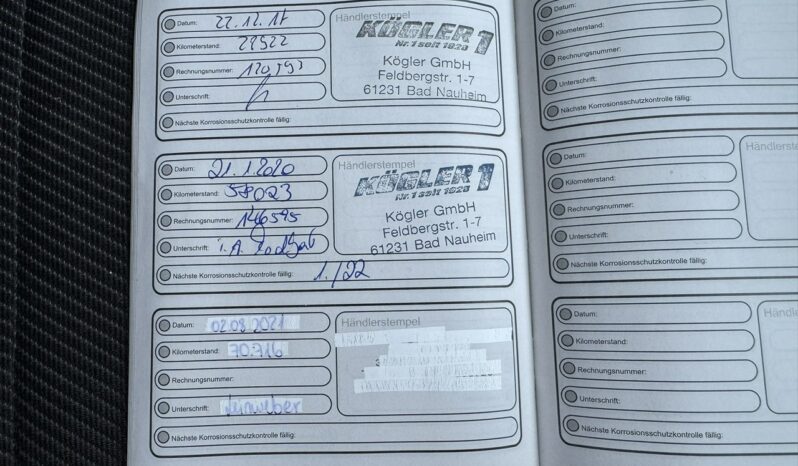 Datum: 22.12.17
Kilometerstand: 22922
Rechnungsnummer:
Unterschrift:
Nächste Korrosionsschutzkontrolle fällig:
Händlerstempel
KÖGLER 1
Nr. 1 seit 1920
Kögler GmbH
Feldbergstr. 1-7
61231 Bad Nauheim
Datum: 21.1.2020
Kilometerstand: 58023
Rechnungsnummer: 146595
Unterschrift: i.A.
Nächste Korrosionsschutzkontrolle fällig: 1./22
Händlerstempel
KÖGLER 1
Nr. 1 seit 1920
Kögler GmbH
Feldbergstr. 1-7
61231 Bad Nauheim
Datum: 02.08.2021
Kilometerstand: 70.716
Rechnungsnummer:
Unterschrift: Leinweber
Nächste Korrosionsschutzkontrolle fällig:
Händlerstempel
Datum:
Kilometerstand:
Rechnungsnummer:
Unterschrift:
Nächste Korrosionsschutzkontrolle fällig:
Händ
Datum:
Kilometerstand:
Rechnungsnummer:
Unterschrift:
Nächste Korrosionsschutzkontrolle fällig:
Händlerst
Datum:
Kilometerstand:
Rechnungsnummer:
Unterschrift:
Nächste Korrosionsschutzkontrolle fällig:
Händlers